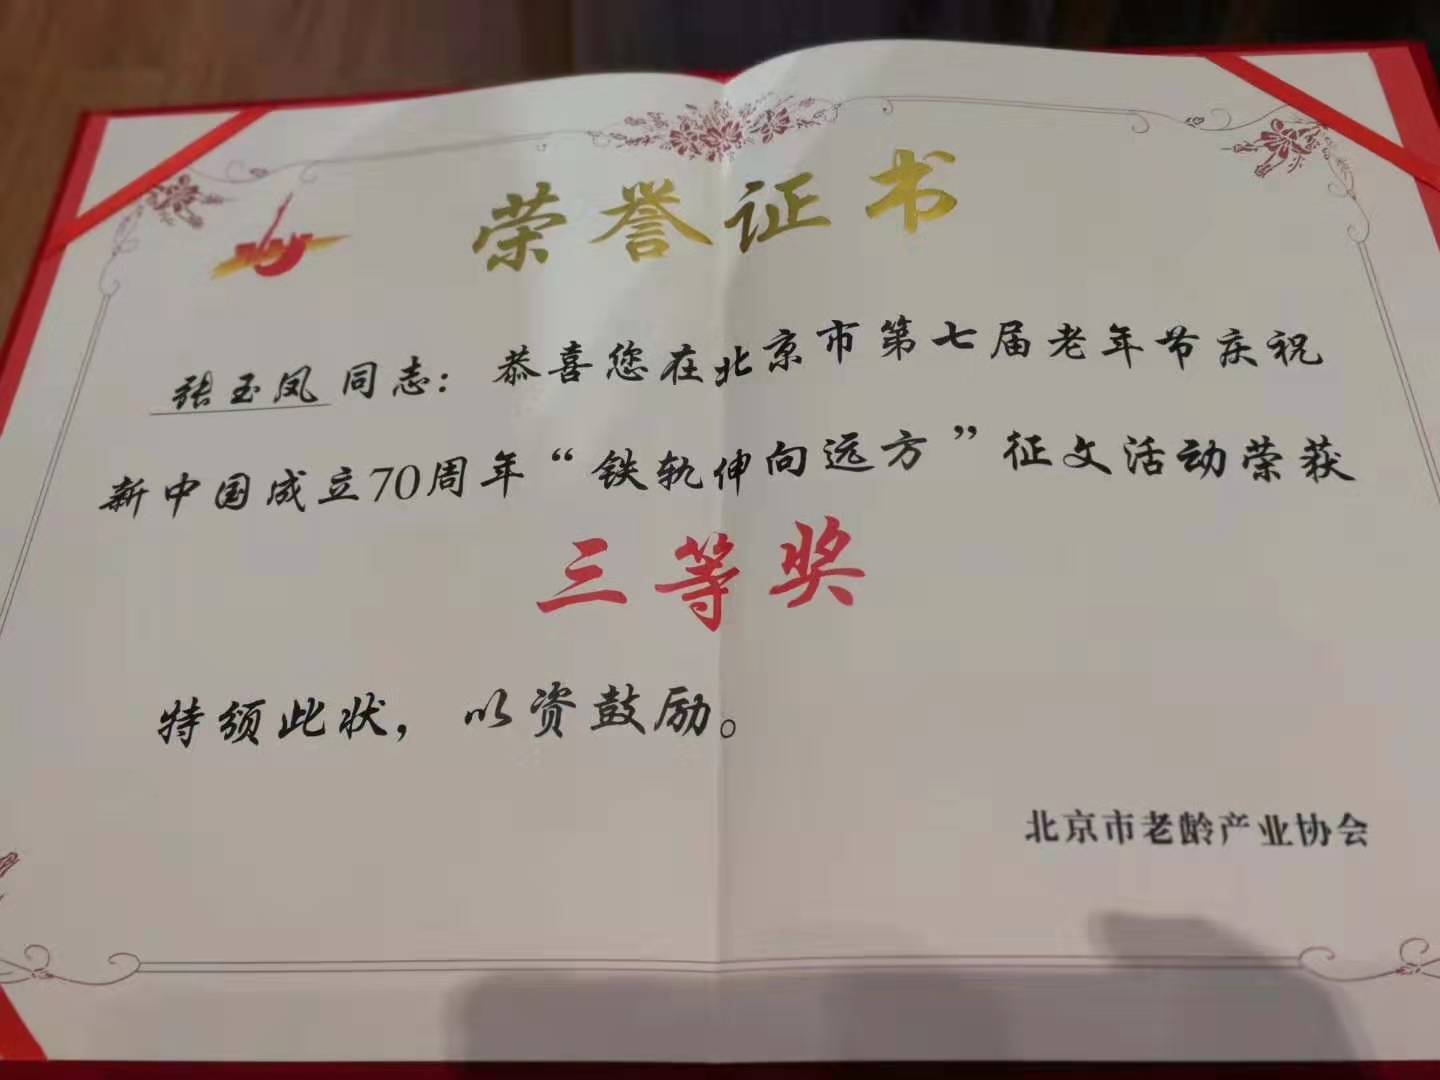 荣誉证书
张玉凤同志：恭喜您在北京市第七届老年节庆祝
新中国成立70周年“铁轨伸向远方”征文活动荣获
三等奖
特颁此状，以资鼓励。
北京市老龄产业协会